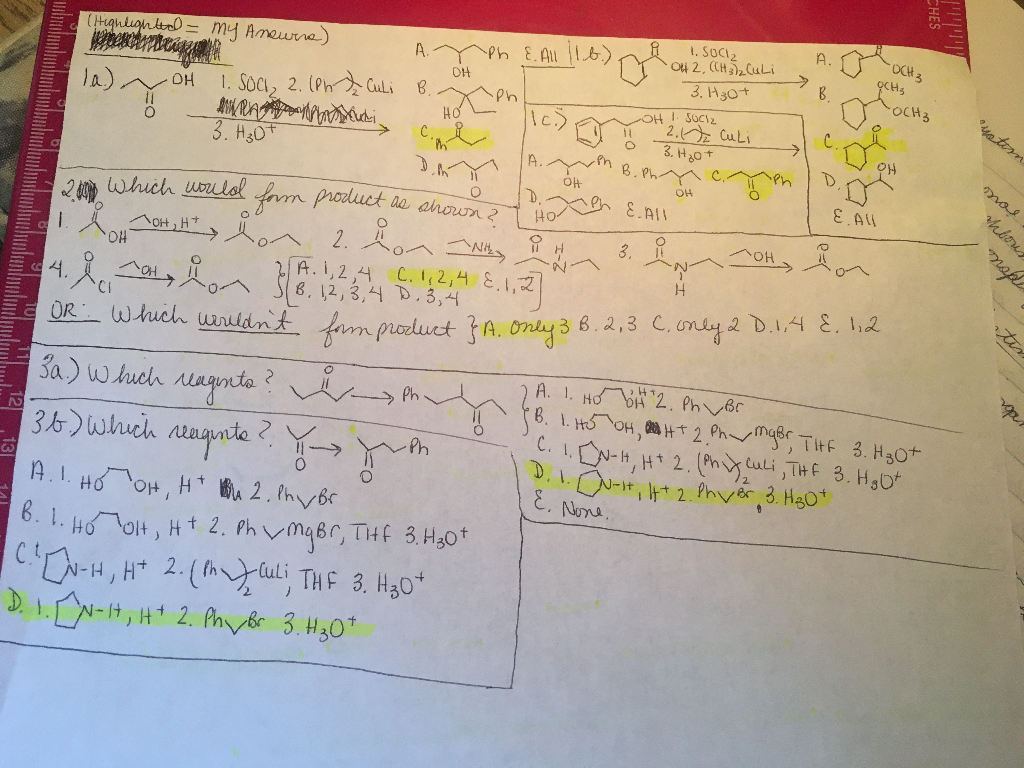 (Highlighted = my Answers)
1a.)
OH
O
1. SOCl2 2. (Ph )2 CuLi
3. H3O+
A. Ph
OH
B. Ph
HO
C. Ph O
D. Ph O
E. All
1b.)
O
OH
1. SOCl2
2. (CH3)2CuLi
3. H3O+
A. O OCH3
B. OCH3
OCH3
C. O
D. OH
E. All
1c.)
OH
O
1. SOCl2
2. ( )2 CuLi
3. H3O+
A. Ph
OH
B. Ph
OH
C. Ph
O
D. HO Ph
E. All
2. Which would form product as shown?
1. O OH OH, H+ O O
2. O O NH2 O H N
3. O N H OH O O
4. O Cl OH O O
A. 1, 2, 4 C. 1, 2, 4 E. 1, 2
B. 1,2,3,4 D. 3,4
OR: Which wouldn't form product A. only 3 B. 2,3 C. only 2 D. 1,4 E. 1,2
3a.) Which reagents? O Ph O
A. 1. HO OH, H+ 2. Ph Br
B. 1. HO OH, H+ 2. Ph MgBr, THF 3. H3O+
C. 1. N-H, H+ 2. (Ph )2 CuLi, THF 3. H3O+
D. 1. N-H, H+ 2. Ph Br, 3. H3O+
E. None.
3b.) Which reagents? O O Ph
A. 1. HO OH, H+ 2. Ph Br
B. 1. HO OH, H+ 2. Ph MgBr, THF 3. H3O+
C. 1. N-H, H+ 2. (Ph )2 CuLi, THF 3. H3O+
D. 1. N-H, H+ 2. Ph Br 3. H3O+